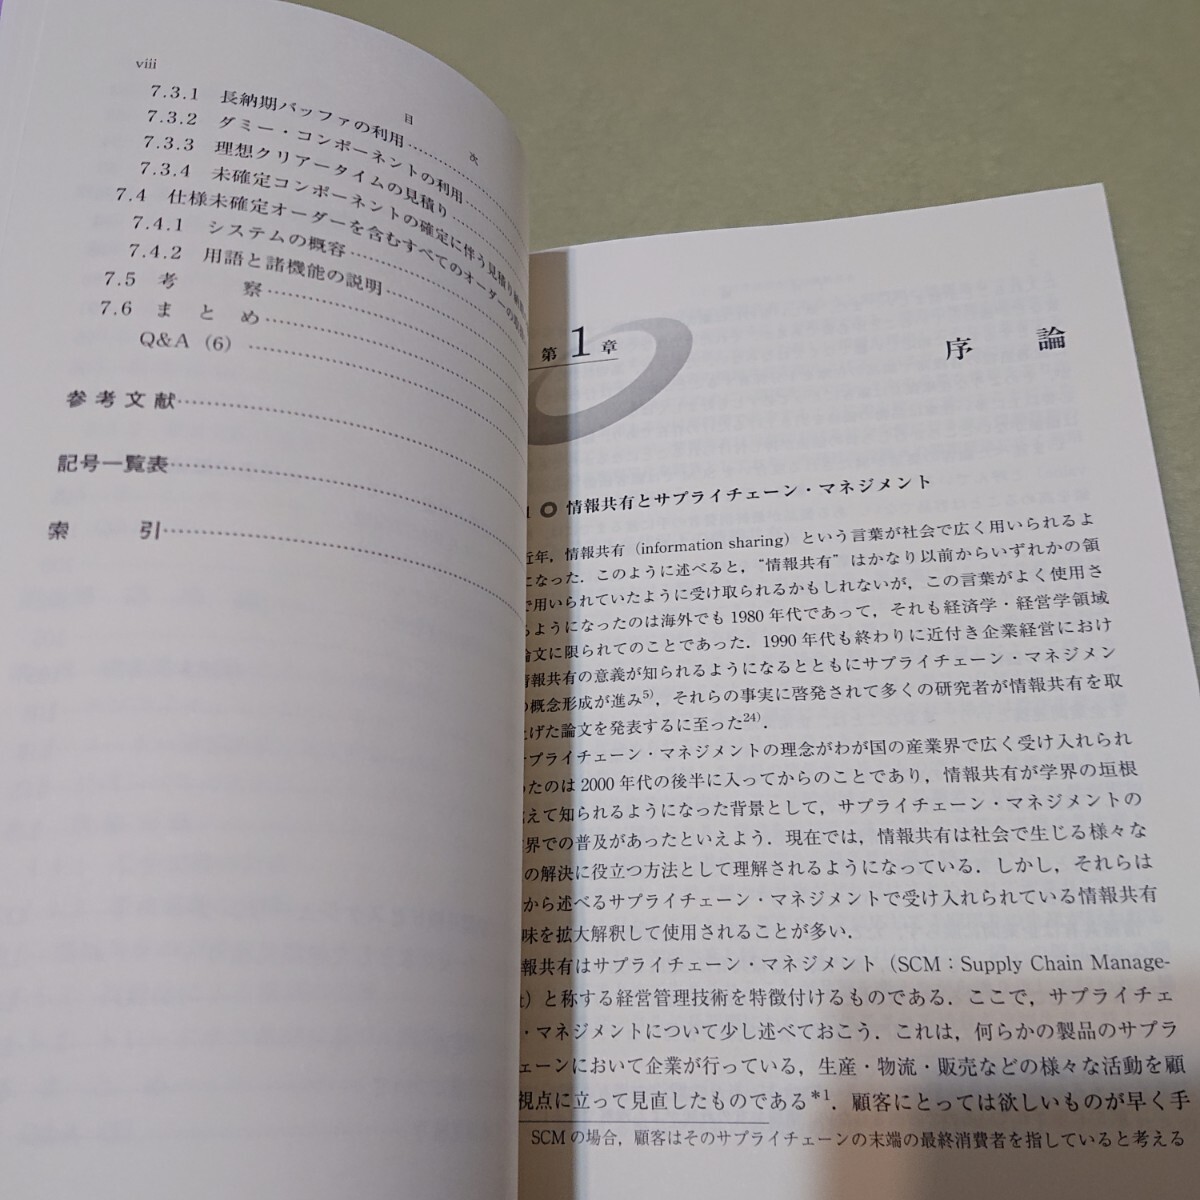 viii
目
次
7.3.1 長納期バッファの利用
7.3.2 ダミー・コンポーネントの利用
7.3.3 理想クリアータイムの見積り
7.3.4 未確定コンポーネントの確定に伴う見積り
7.4 仕様未確定オーダーを含むすべてのオーダーの
7.4.1 システムの概容
7.4.2 用語と諸機能の説明
7.5 考察
7.6 まとめ
Q&A（6）
参考文献
記号一覧表
索引
第1章
序論
1 情報共有とサプライチェーン・マネジメント
近年，情報共有（information sharing）という言葉が社会で広く用いられるよ
になった．このように述べると，“情報共有”はかなり以前からいずれかの領
で用いられていたように受け取られるかもしれないが，この言葉がよく使用さ
るようになったのは海外でも1980年代であって，それも経済学・経営学領域
論文に限られてのことであった．1990年代も終わりに近付き企業経営におけ
情報共有の意義が知られるようになるとともにサプライチェーン・マネジメン
の概念形成が進み5)，それらの事実に啓発されて多くの研究者が情報共有を取
上げた論文を発表するに至った24)．
サプライチェーン・マネジメントの理念がわが国の産業界で広く受け入れられ
ったのは2000年代の後半に入ってからのことであり，情報共有が学界の垣根
えて知られるようになった背景として，サプライチェーン・マネジメントの
界での普及があったといえよう．現在では，情報共有は社会で生じる様々な
の解決に役立つ方法として理解されるようになっている．しかし，それらは
から述べるサプライチェーン・マネジメントで受け入れられている情報共有
味を拡大解釈して使用されることが多い．
報共有はサプライチェーン・マネジメント（SCM：Supply Chain Manage-
t）と称する経営管理技術を特徴付けるものである．ここで，サプライチェ
・マネジメントについて少し述べておこう．これは，何らかの製品のサプラ
ェーンにおいて企業が行っている，生産・物流・販売などの様々な活動を顧
視点に立って見直したものである*1．顧客にとっては欲しいものが早く手
SCMの場合，顧客はそのサプライチェーンの末端の最終消費者を指していると考える